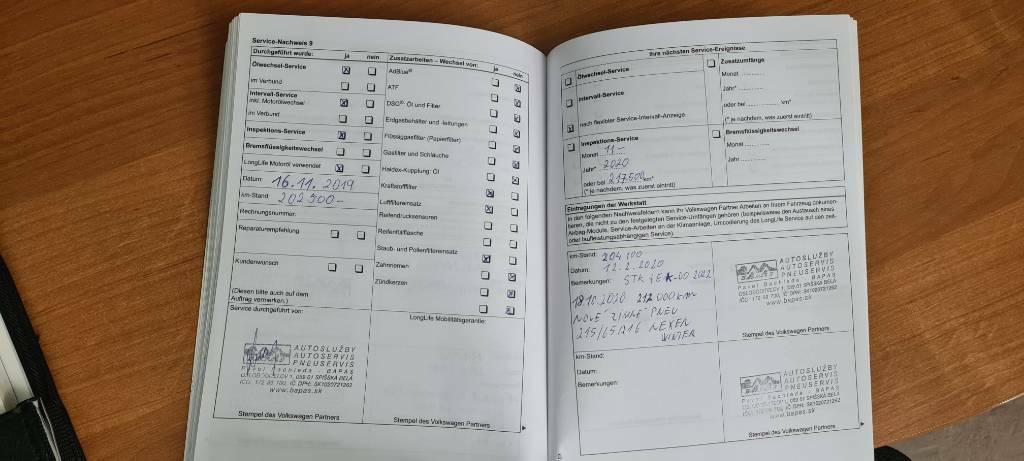 Service-Nachweis 9
Durchgeführt wurde: ja nein
Ölwechsel-Service
im Verbund
Intervall-Service
inkl. Motorölwechsel
im Verbund
Inspektions-Service
Bremsflüssigkeitswechsel
LongLife Motoröl verwendet
Datum: 16.11.2019
km-Stand: 202 500-
Rechnungsnummer:
Reparaturempfehlung
Kundenwunsch
(Diesen bitte auch auf dem
Auftrag vermerken.)
Service durchgeführt von:
AUTOSLUŽBY
AUTOSERVIS
PNEUSERVIS
Pavol Bachleda - BAPAS
OSLOBODITEĽOV 1, 059 01 SPIŠSKÁ BELÁ
www.bapas.sk
Stempel des Volkswagen Partners
Zusatzarbeiten – Wechsel von: ja nein
AdBlue®
ATF
DSG®: Öl und Filter
Erdgasbehälter und -leitungen
Flüssiggasfilter (Papierfilter)
Gasfilter und Schläuche
Haldex-Kupplung: Öl
Kraftstofffilter
Luftfiltereinsatz
Reifendrucksensoren
Reifenfüllflasche
Staub- und Pollenfiltereinsatz
Zahnriemen
Zündkerzen
LongLife Mobilitätsgarantie:
Stempel des Volkswagen Partners
Ihre nächsten Service-Ereignisse
Ölwechsel-Service
Intervall-Service
nach flexibler Service-Intervall-Anzeige
Inspektions-Service
Monat 11-
Jahr* 2020
oder bei 217500 km*
(* je nachdem, was zuerst eintritt)
Zusatzumfänge
Monat
Jahr*
oder bei km*
(* je nachdem, was zuerst eintritt)
Bremsflüssigkeitswechsel
Monat
Jahr
Eintragungen der Werkstatt
In den folgenden Nachweisfeldern kann Ihr Volkswagen Partner Arbeiten an Ihrem Fahrzeug dokumen-
tieren, die nicht zu den festgelegten Service-Umfängen gehören (beispielsweise den Austausch eines
Airbag-Moduls, Service-Arbeiten an der Klimaanlage, Umcodierung des LongLife Service auf den zeit-
oder laufleistungsabhängigen Service).
km-Stand: 204 100
Datum: 12.2.2020
Bemerkungen: STK + EK-DO 2022
18.10.2020 212 000 km
NOVÉ ZIMNÉ PNEU
215/65/R16 NEXEN
WINTER
AUTOSLUŽBY
AUTOSERVIS
PNEUSERVIS
Pavol Bachleda - BAPAS
OSLOBODITEĽOV 1, 059 01 SPIŠSKÁ BELÁ
www.bapas.sk
Stempel des Volkswagen Partners
km-Stand:
Datum:
Bemerkungen:
AUTOSLUŽBY
AUTOSERVIS
PNEUSERVIS
Pavol Bachleda - BAPAS
OSLOBODITEĽOV 1, 059 01 SPIŠSKÁ BELÁ
www.bapas.sk
Stempel des Volkswagen Partners